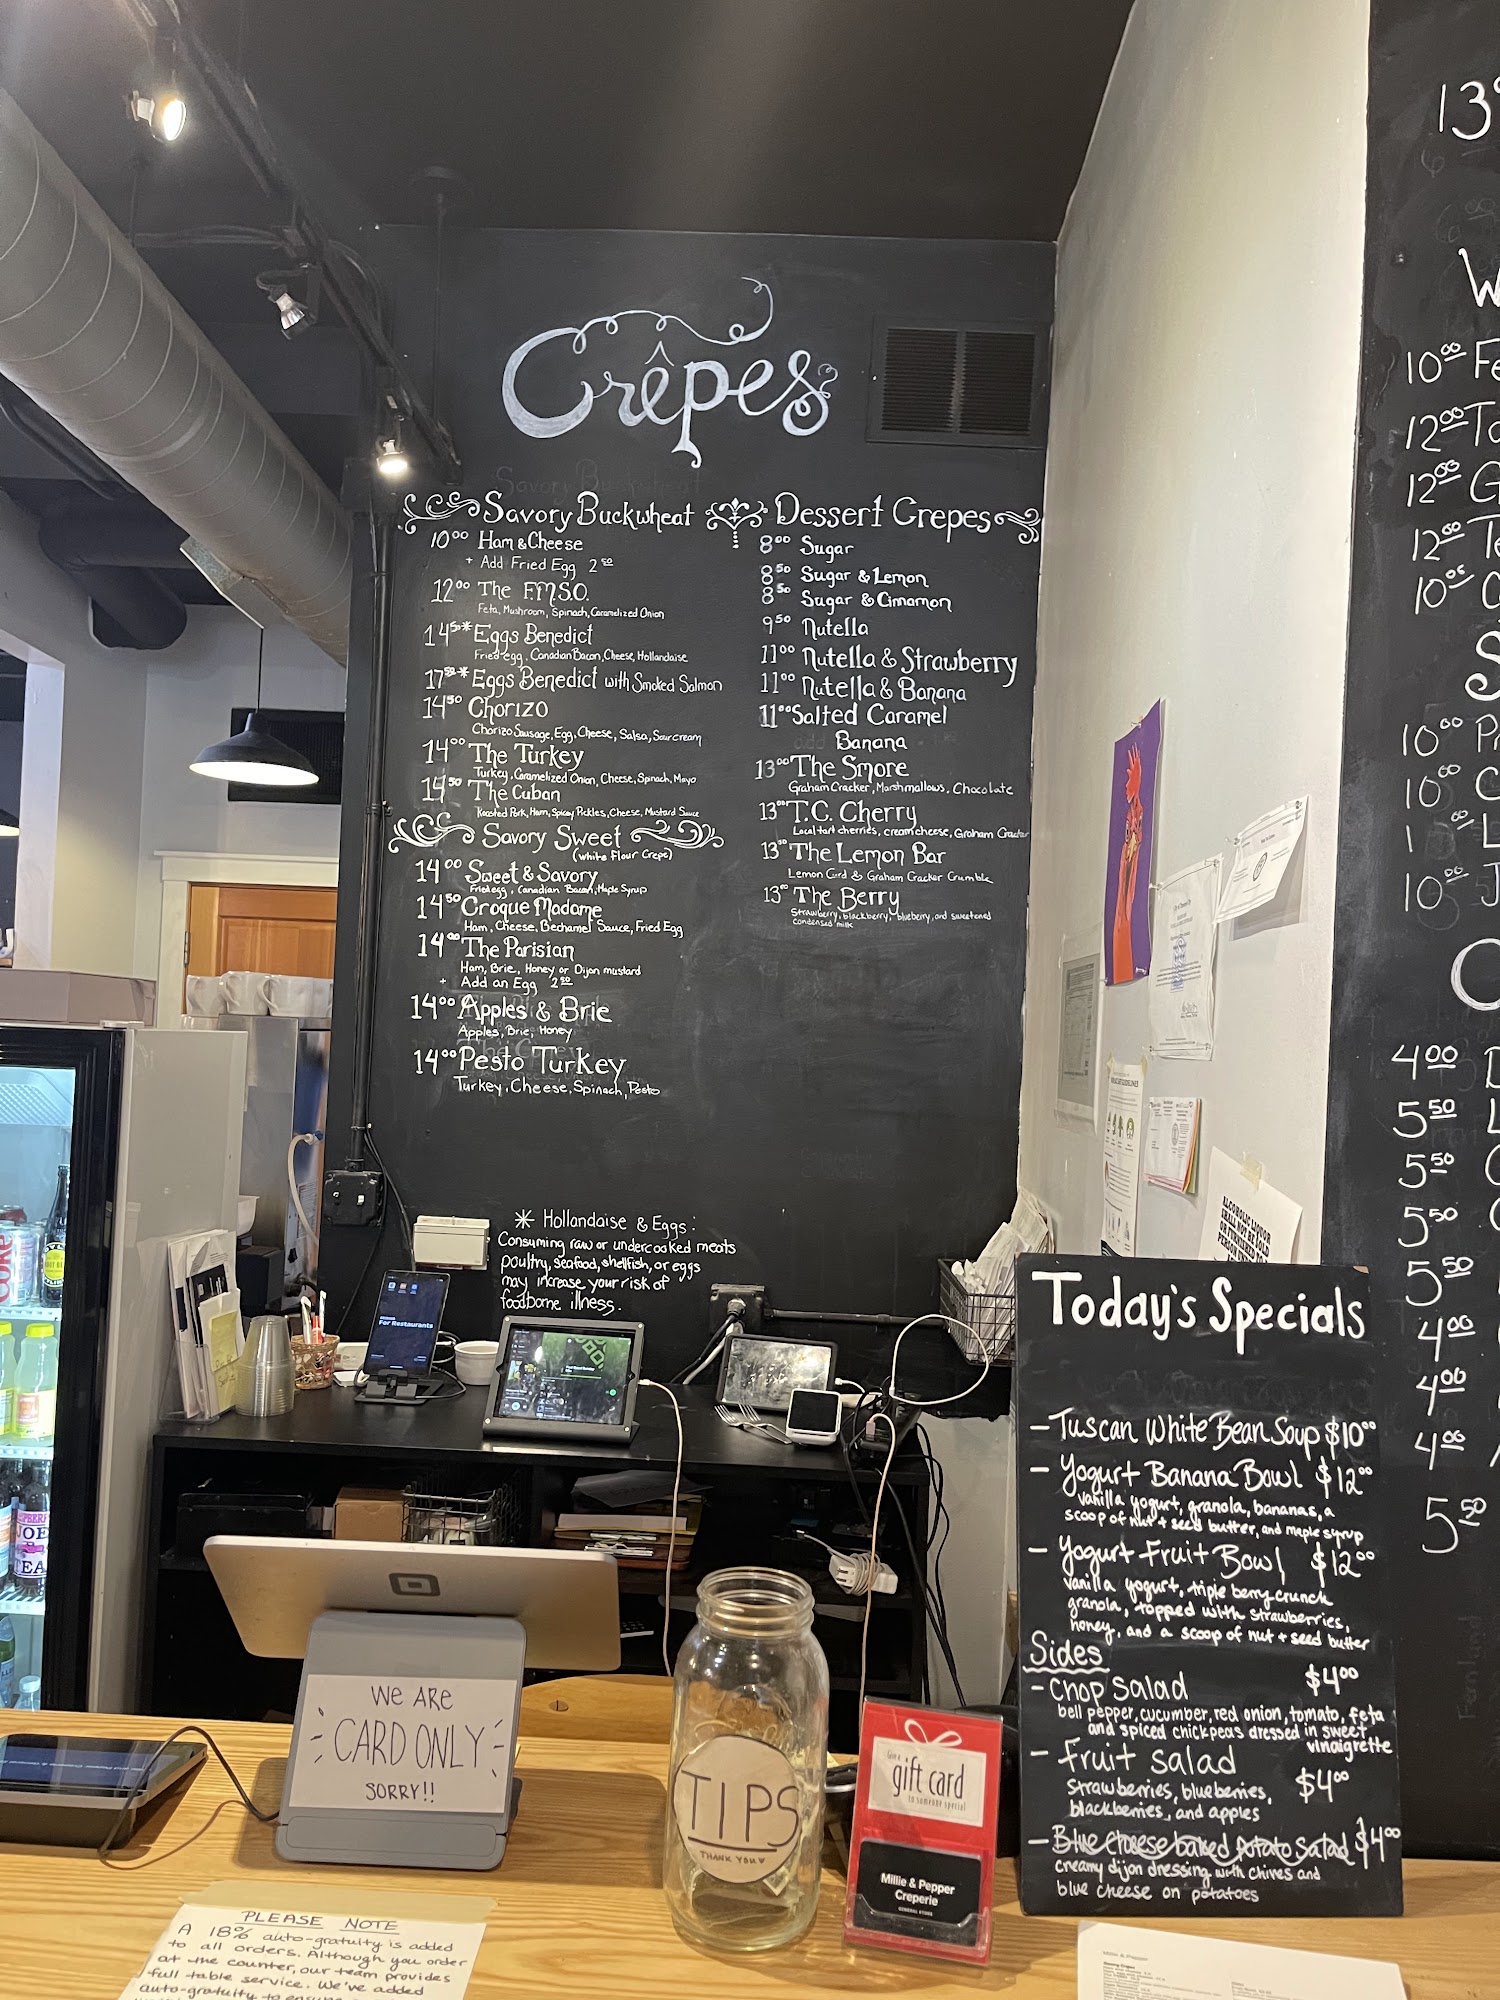 Crêpes
Savory Buckwheat
10⁰⁰ Ham & Cheese
+ Add Fried Egg 2⁵⁰
12⁰⁰ The F.M.S.O.
Feta, Mushroom, Spinach, Caramelized Onion
14⁵⁰* Eggs Benedict
Fried egg, Canadian Bacon, Cheese, Hollandaise
17⁵⁰* Eggs Benedict with Smoked Salmon
14⁵⁰ Chorizo
Chorizo Sausage, Egg, Cheese, Salsa, Sour cream
14⁰⁰ The Turkey
Turkey, Caramelized Onion, Cheese, Spinach, Mayo
14⁵⁰ The Cuban
Roasted Pork, Ham, Spicy Pickles, Cheese, Mustard Sauce
Savory Sweet
(white flour crepe)
14⁰⁰ Sweet & Savory
Fried egg, Canadian Bacon, Maple Syrup
14⁵⁰ Croque Madame
Ham, Cheese, Bechamel Sauce, Fried Egg
14⁰⁰ The Parisian
Ham, Brie, Honey or Dijon mustard
+ Add an Egg 2⁵⁰
14⁰⁰ Apples & Brie
Apples, Brie, Honey
14⁰⁰ Pesto Turkey
Turkey, Cheese, Spinach, Pesto
Dessert Crepes
8⁰⁰ Sugar
8⁵⁰ Sugar & Lemon
8⁵⁰ Sugar & Cinnamon
9⁵⁰ Nutella
11⁰⁰ Nutella & Strawberry
11⁰⁰ Nutella & Banana
11⁰⁰ Salted Caramel
Banana
13⁰⁰ The Smore
Graham Cracker, Marshmallows, Chocolate
13⁰⁰ T.C. Cherry
Local tart cherries, cream cheese, Graham Cracker
13⁰⁰ The Lemon Bar
Lemon Curd & Graham Cracker Crumble
13⁰⁰ The Berry
Strawberry, blackberry, blueberry, and sweetened
condensed milk
* Hollandaise & Eggs:
Consuming raw or undercooked meats
poultry, seafood, shellfish, or eggs
may increase your risk of
foodborne illness.
For Restaurants
Today's Specials
- Tuscan White Bean Soup $10⁰⁰
- Yogurt Banana Bowl $12⁰⁰
vanilla yogurt, granola, bananas, a
scoop of nut + seed butter, and maple syrup
- Yogurt Fruit Bowl $12⁰⁰
vanilla yogurt, triple berry crunch
granola, topped with strawberries,
honey, and a scoop of nut + seed butter
Sides
- Chop Salad $4⁰⁰
bell pepper, cucumber, red onion, tomato, feta
and spiced chickpeas dressed in sweet
vinaigrette
- Fruit Salad $4⁰⁰
strawberries, blueberries,
blackberries, and apples
- Blue Cheese baked potato Salad $4⁰⁰
creamy dijon dressing with chives and
blue cheese on potatoes
13
W
10⁰⁰ Fe
12⁰⁰ To
12⁰⁰ G
12⁰⁰ Te
10
S
10⁰⁰
10⁰⁰ C
10⁰⁰ J
4⁰⁰
5⁵⁰
5⁵⁰
5⁵⁰
5⁵⁰
4⁰⁰
4⁰⁰
4⁰⁰
5⁵⁰
WE ARE
CARD ONLY
SORRY!!
TIPS
THANK YOU ♥
Give a
gift card
to someone special
Millie & Pepper
Creperie
GENERAL STORE
PLEASE NOTE
A 18% auto-gratuity is added
to all orders. Although you order
at the counter, our team provides
full table service. We've added
auto-gratuity to
Millie & Pepper